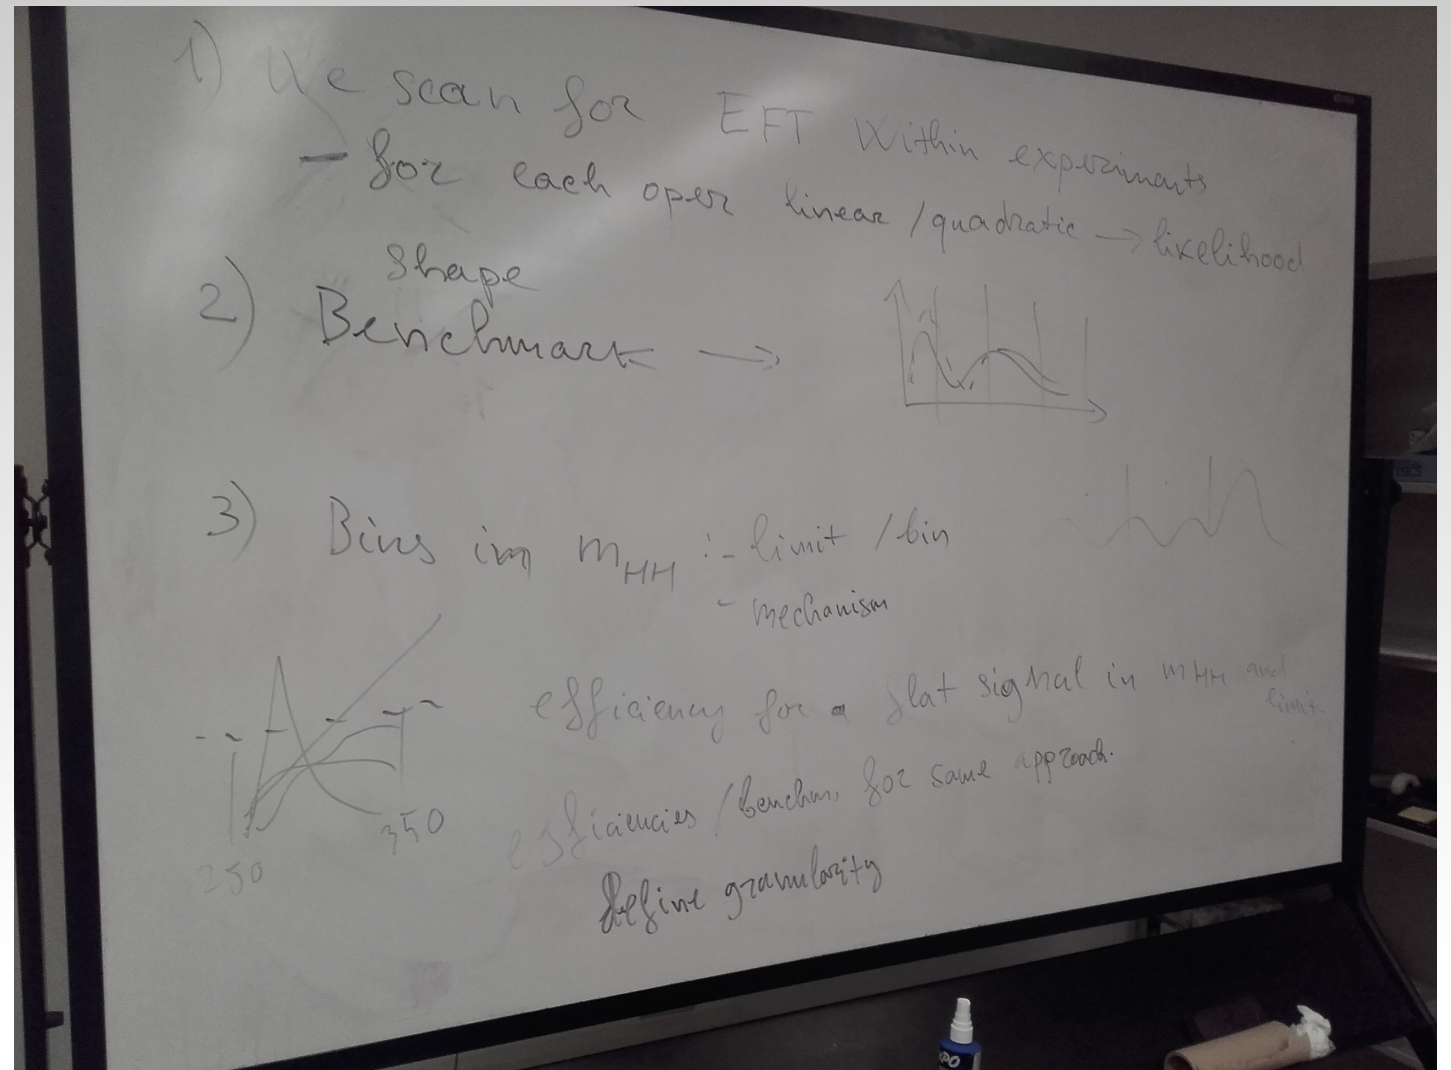 1) We scan for EFT within experiments
- for each oper linear / quadratic → likelihood
Shape
2) Benchmark →
3) Bins in mHH : - limit / bin
- mechanism
efficiency for a flat signal in mHH and
limit.
efficiencies / benchm. for same approach.
Define granularity
250
350